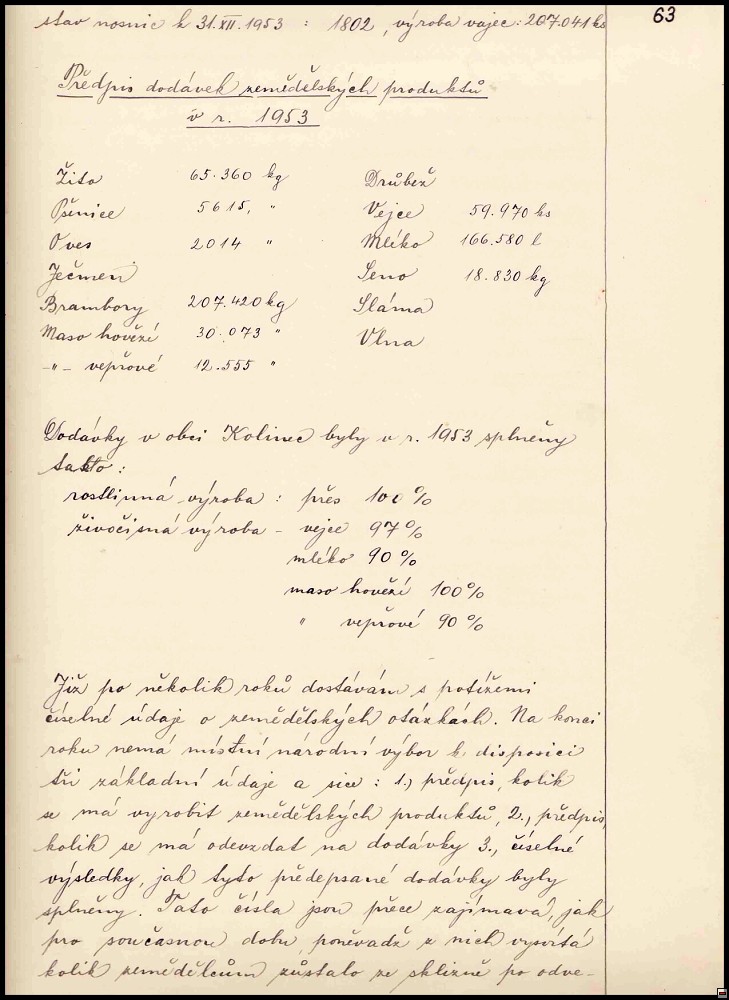 63
stav nosnic k 31.XII.1953 : 1802, výroba vajec: 207.041 ks
Předpis dodávek zemědělských produktů
v r. 1953
Žito 65.360 kg Drůbež
Pšenice 5615, " Vejce 59.970 ks
Oves 2014 " Mléko 166.580 l
Ječmen Seno 18.830 kg
Brambory 207.420 kg Sláma
Maso hovězí 30.073 " Vlna
-"- vepřové 12.555 "
Dodávky v obci Kolinec byly v r. 1953 splněny
takto:
rostlinná výroba : přes 100%
živočisná výroba - vejce 97%
mléko 90%
maso hovězí 100%
" vepřové 90%
Již po několik roků dostávám s potížemi
číselné údaje o zemědělských otázkách. Na konci
roku nemá místní národní výbor k disposici
tři základní údaje a sice : 1., předpis, kolik
se má vyrobit zemědělských produktů, 2., předpis,
kolik se má odevzdat na dodávky 3., číselné
výsledky, jak tyto předepsané dodávky byly
splněny. Tato čísla jsou přece zajímavá, jak
pro současnou dobu, poněvadž z nich vysvítá
kolik zemědělcům zůstalo ze sklizně po odve-